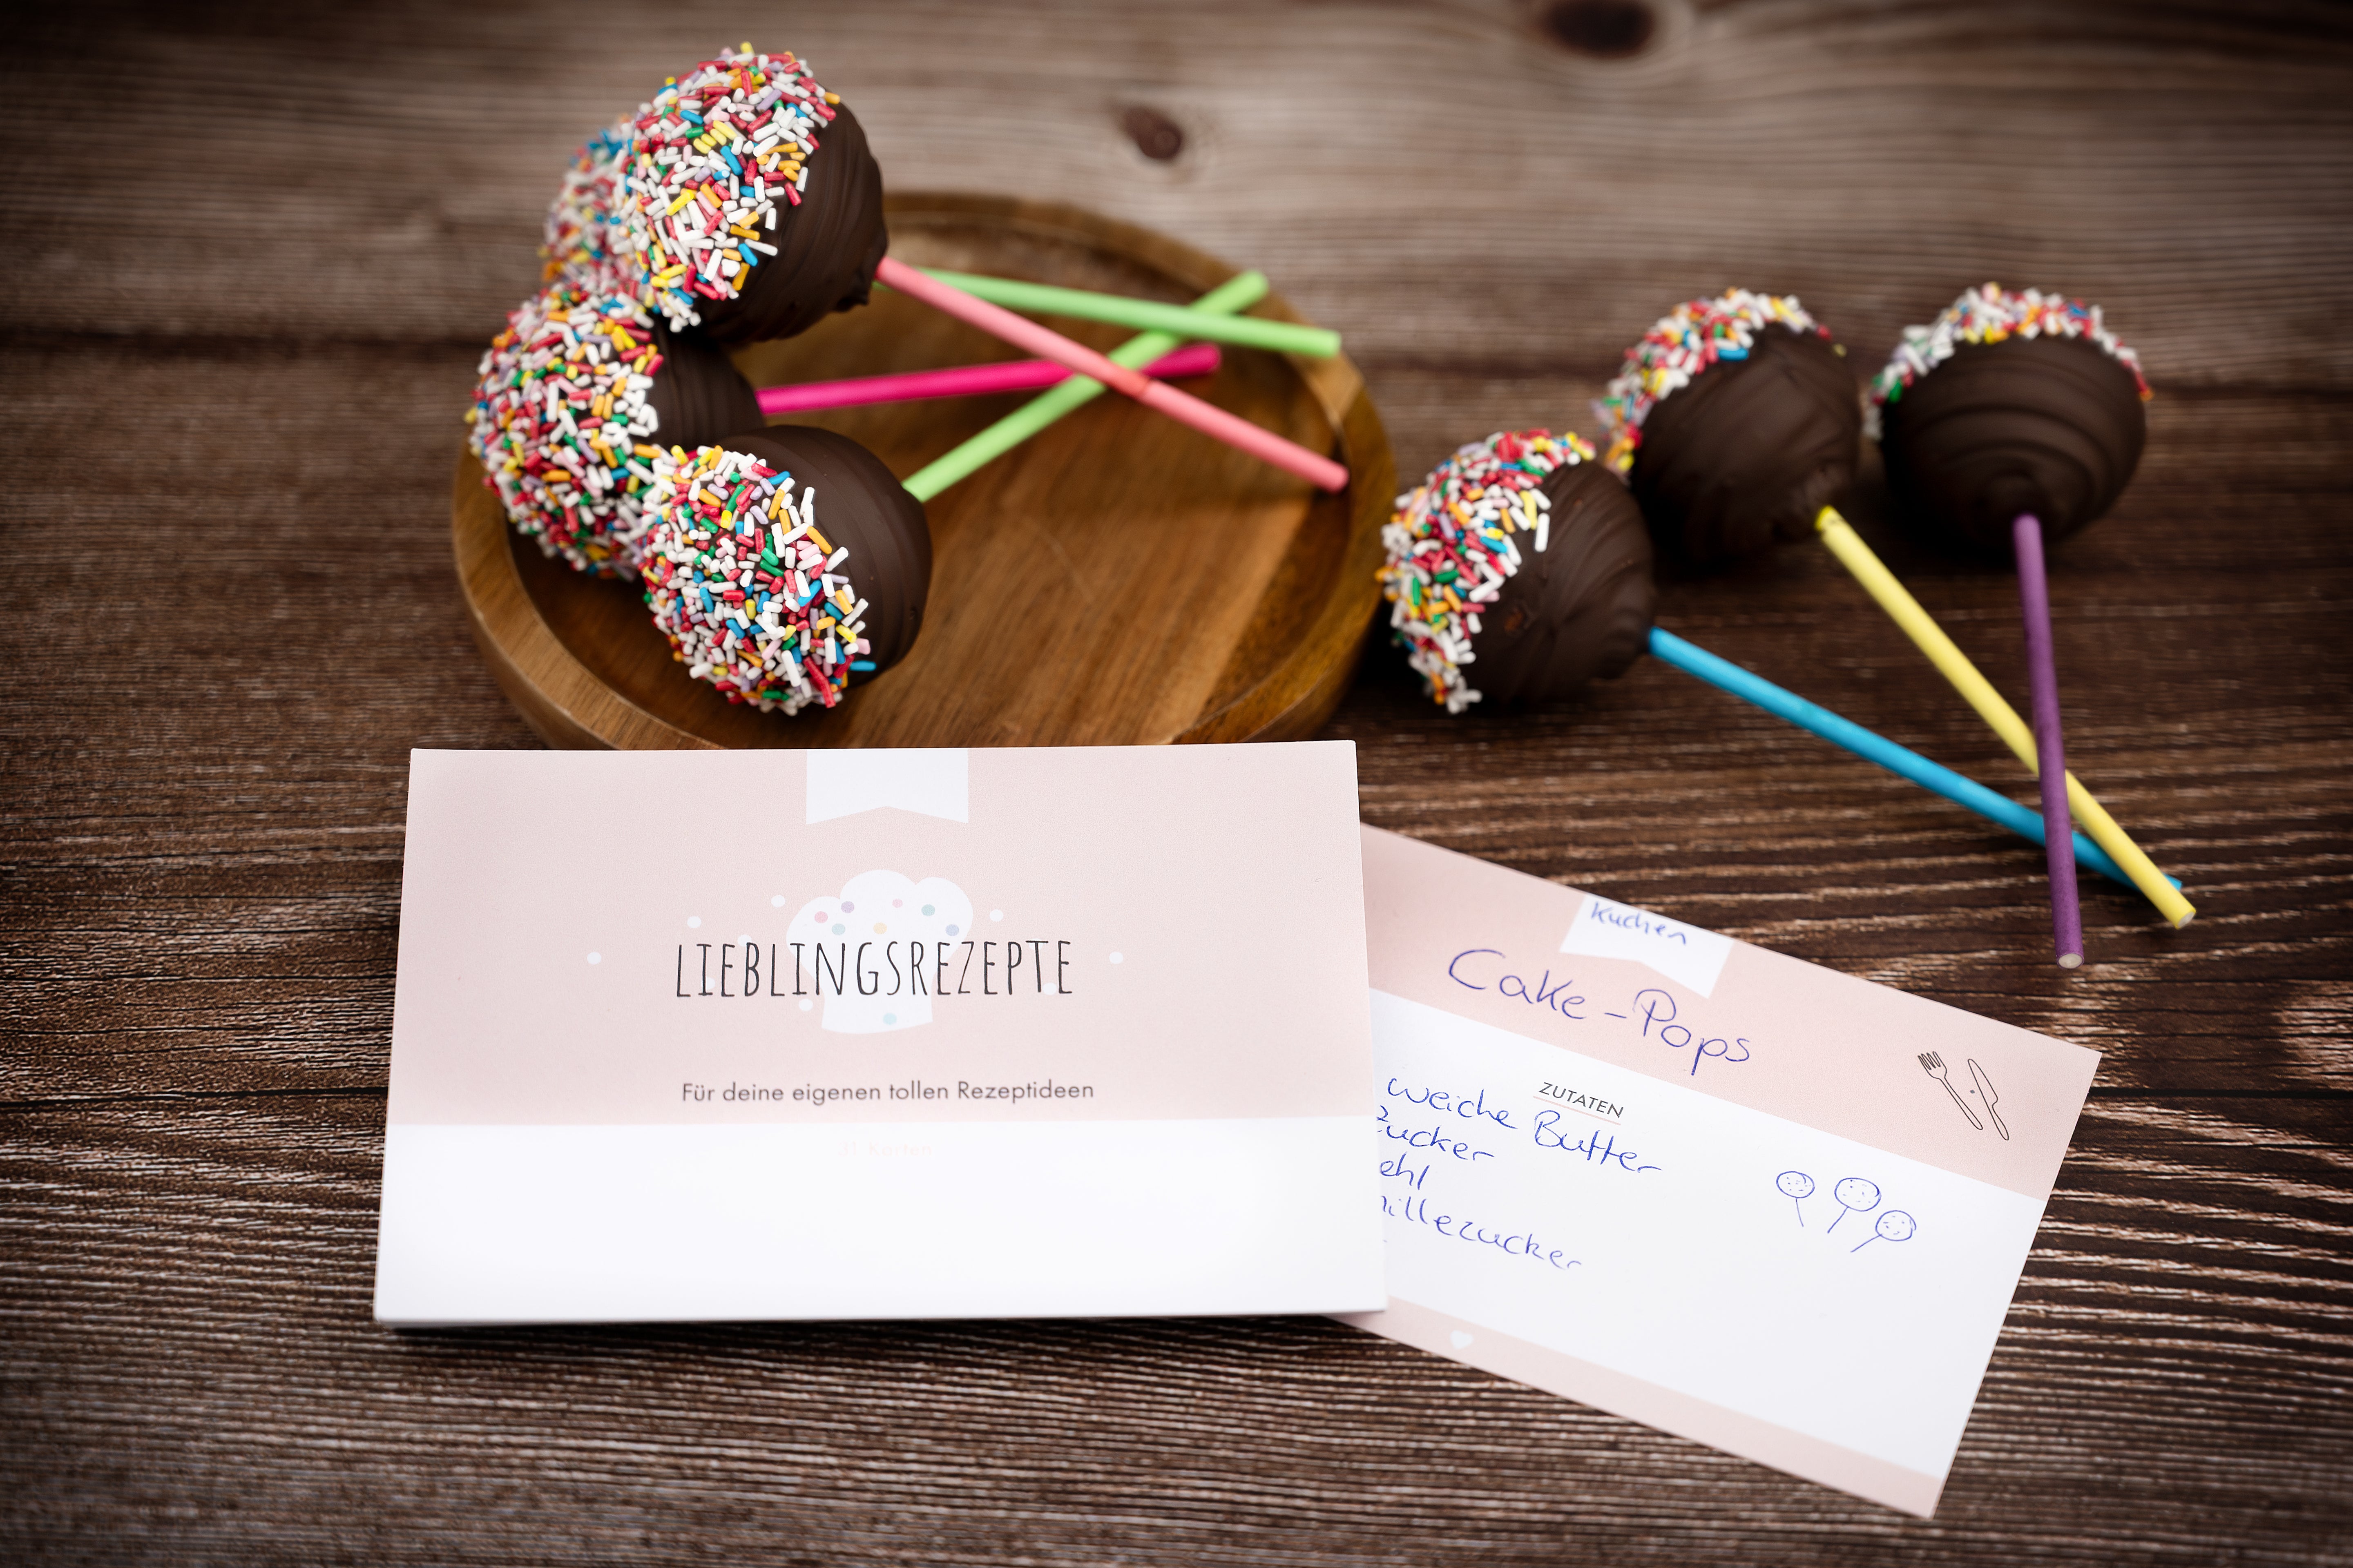 LIEBLINGSREZEPTE
Für deine eigenen tollen Rezeptideen
31 Karten
Kuchen
Cake-Pops
ZUTATEN
weiche Butter
Zucker
ehl
illezucker